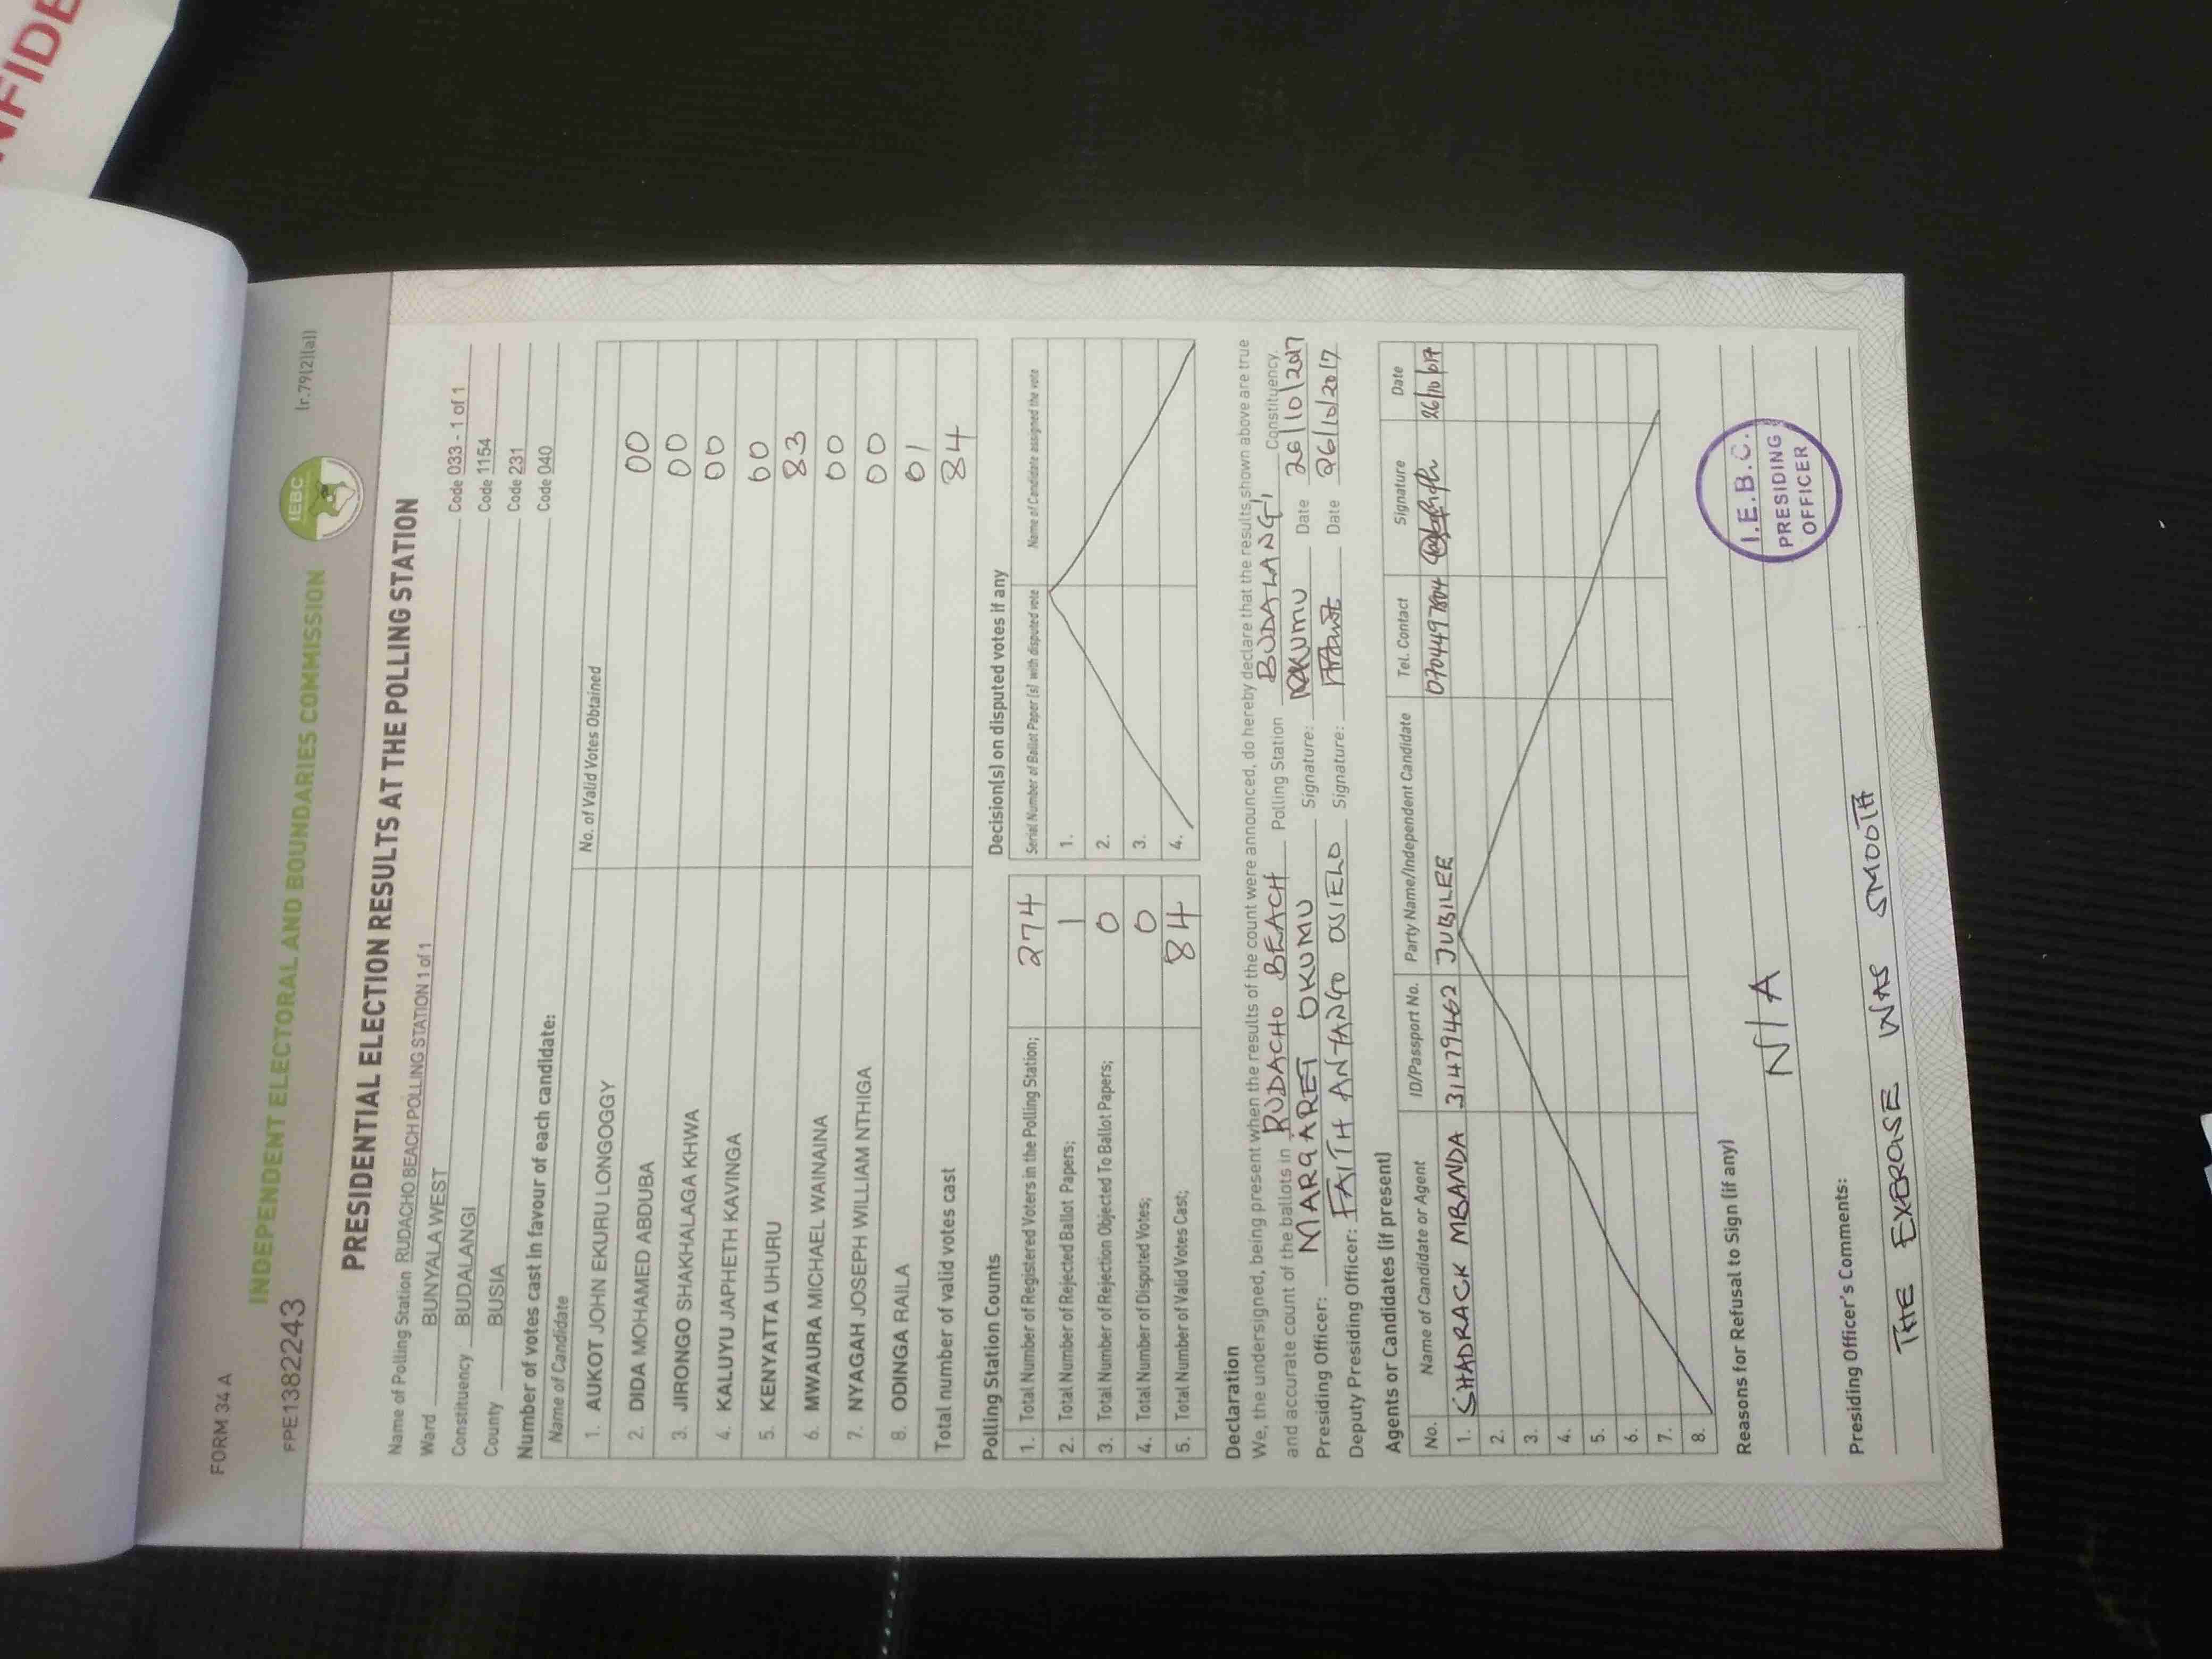 NFIDE
FORM 34 A
(r.79(2)(a))
FPE1382243
INDEPENDENT ELECTORAL AND BOUNDARIES COMMISSION
IEBC
PRESIDENTIAL ELECTION RESULTS AT THE POLLING STATION
Name of Polling Station RUDACHO BEACH POLLING STATION 1 of 1 Code 033 - 1 of 1
Ward BUNYALA WEST Code 1154
Constituency BUDALANGI Code 231
County BUSIA Code 040
Number of votes cast in favour of each candidate:
Name of Candidate No. of Valid Votes Obtained
1. AUKOT JOHN EKURU LONGOGGY 00
2. DIDA MOHAMED ABDUBA 00
3. JIRONGO SHAKHALAGA KHWA 00
4. KALUYU JAPHETH KAVINGA 00
5. KENYATTA UHURU 83
6. MWAURA MICHAEL WAINAINA 00
7. NYAGAH JOSEPH WILLIAM NTHIGA 00
8. ODINGA RAILA 01
Total number of valid votes cast 84
Polling Station Counts
1. Total Number of Registered Voters in the Polling Station; 274
2. Total Number of Rejected Ballot Papers; 1
3. Total Number of Rejection Objected To Ballot Papers; 0
4. Total Number of Disputed Votes; 0
5. Total Number of Valid Votes Cast; 84
Decision(s) on disputed votes if any
Serial Number of Ballot Paper (s) with disputed vote Name of Candidate assigned the vote
1.
2.
3.
4.
Declaration
We, the undersigned, being present when the results of the count were announced, do hereby declare that the results shown above are true
and accurate count of the ballots in RUDACHO BEACH Polling Station BUDALANGI Constituency.
Presiding Officer: MARGARET OKUMU Signature: Date 26/10/2017
Deputy Presiding Officer: FAITH ANYANGO OSIELO Signature: Date 26/10/2017
Agents or Candidates (if present)
No. Name of Candidate or Agent ID/Passport No. Party Name/Independent Candidate Tel. Contact Signature Date
1. SHADRACK MBANDA 31479462 JUBILEE
2.
3.
4.
5.
6.
7.
8.
Reasons for Refusal to Sign (if any)
N/A
I.E.B.C.
PRESIDING
OFFICER
Presiding Officer's Comments:
THE EXERCISE WAS SMOOTH